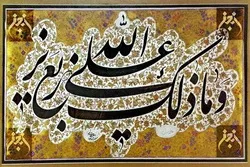 وما ذلک علی الله بعزیز